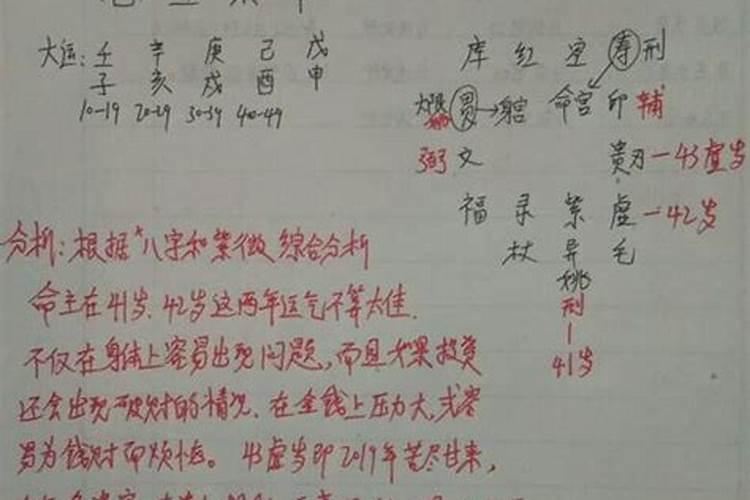 大运：壬 辛 庚 己 戊
子 亥 戌 酉 申
10-19 20-29 30-39 40-49
库 红 空 寿 刑
大限 贯 → 命宫 印 辅
弼 文 贵 刃 — 43虚岁
福 录 紫 虚 — 42岁
杖 异 毛
姚
刑
41岁
分析：根据"八字和紫微综合分析
命主在41岁、42岁这两年运气不算太佳.
不仅在身体上容易出现问题,而且如果投资
还会出现破财的情况.在金钱上压力大,或容
易为钱财而烦恼。43虚岁即2019年苦尽甘来,